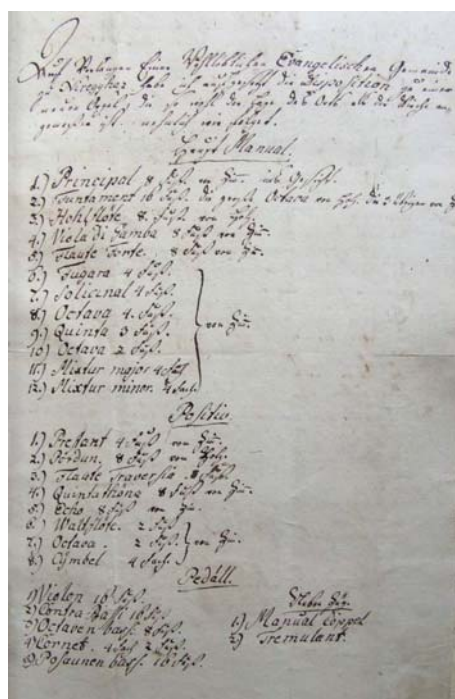 Auf Verlangen Einer Wohllöblichen Evangelischen Gemeinde
zu Nireghaz habe ich die Disposition zu einer
neuen Orgel, die so wohl die Lage des Orts als die Kirche an-
ist. nehmlich wie folget.
Haupt Manual.
1.) Principal 8 Fuß. von Zin. ins Gesicht.
2.) 16 Fuß. die große Octava von Holz. die 3 übrigen von Zin
3.) Hohlflöte. 8. Fuß. von Holz.
4.) Viola di Gamba 8 Fuß von Zin.
5.) Flaute Forte. 8 Fuß. von Zin.
6.) Fugara 4 Fuß.
7.) Solicinal 4 Fuß.
8.) Octava 4. Fuß.
9.) Quinta 3 Fuß.
10.) Octava 2 Fuß.
von Zin.
11.) Mixtur major 4 Fach
12.) Mixtur minor. 4 Fach.
Positiv.
1.) Prestant 4 Fuß von Zin.
2.) Pordun. 8 Fuß von Holz.
3.) Flaute Traversio. 8 Fuß.
4.) Quintathöna 8 Fuß von Zin.
5.) Echo 8 Fuß von Zin.
6.) Waltflöte. 2 Fuß.
7.) Octava. 2 Fuß.
von Zin.
8.) Cymbel 4 Fach.
Pedall.
1) Violon 16 Fuß.
2) Contra Bass 16 Fuß.
3) Octaven bass. 8 Fuß.
4) Cornet. 4 Fach 2 Fuß.
5) Posaunen bass. 16 Fuß.
Neben Züg.
1) Manual Coppel
2) Tremulant.